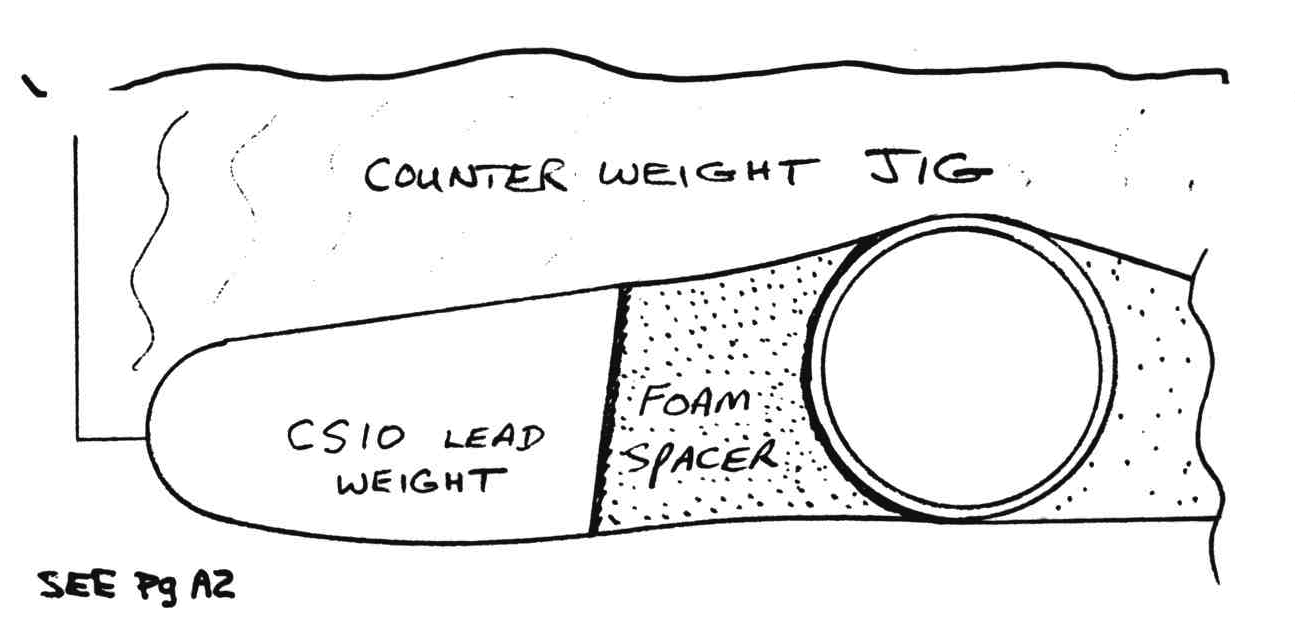 COUNTER WEIGHT JIG
CS10 LEAD
WEIGHT
FOAM
SPACER
SEE Pg A2